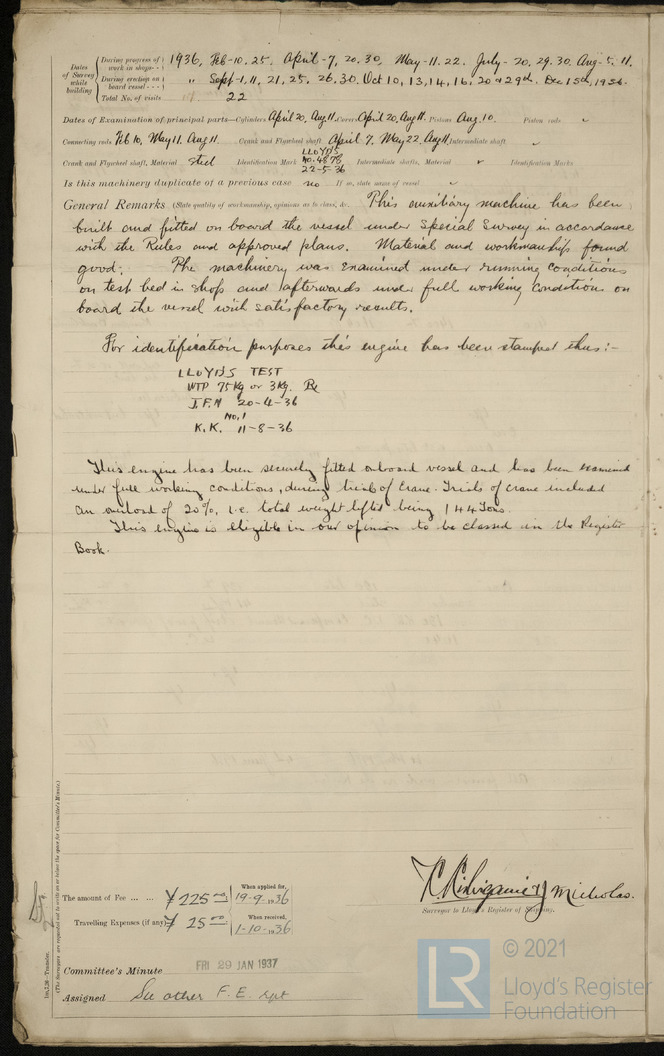 Dates of Survey while building
During progress of work in shops - - 1936, Feb-10, 25. April-7, 20, 30, May-11. 22. July-20. 29. 30. Aug-5. 11.
During erection on board vessel - - - " Sept-1, 11, 21, 25, 26. 30. Oct 10, 13, 14, 16, 20 & 29th. Dec 15th, 1936.
Total No. of visits 22
Dates of Examination of principal parts—Cylinders April 20, Aug 11. Covers April 20, Aug 11. Pistons Aug. 10. Piston rods "
Connecting rods Feb 10, May 11, Aug 11. Crank and Flywheel shaft April 7, May 22, Aug 11 Intermediate shaft "
Crank and Flywheel shaft, Material steel Identification Mark LLOYD'S No. 4878 22-5-36 Intermediate shafts, Material " Identification Marks
Is this machinery duplicate of a previous case no If so, state name of vessel "
General Remarks (State quality of workmanship, opinions as to class, &c. This auxiliary machine has been
built and fitted on board the vessel under Special Survey in accordance
with the Rules and approved plans. Material and workmanship found
good. The machinery was examined under running conditions
on test bed in shop and afterwards under full working conditions on
board the vessel with satisfactory results.
For identification purposes this engine has been stamped thus:-
LLOYD'S TEST
WTP 75 Kg or 3 Kg.
J.F.N 20-4-36
No. 1
K.K. 11-8-36
This engine has been securely fitted onboard vessel and has been examined
under full working conditions, during trials of crane. Trials of crane included
an overload of 20%, i.e. total weight lifted being 144 Tons.
This engine is eligible in our opinion to be classed in the Register
Book.
The amount of Fee ... ... ¥ 225.00 When applied for, 19-9-1936
Travelling Expenses (if any) ¥ 25.00 When received, 1-10-1936
Nicholas.
Surveyor to Lloyd's Register of Shipping.
Committee's Minute FRI 29 JAN 1937
Assigned See other F.E. rpt
(The Surveyors are requested not to write on or below the space for Committee's Minute.)
© 2021
LR
Lloyd's Register
Foundation